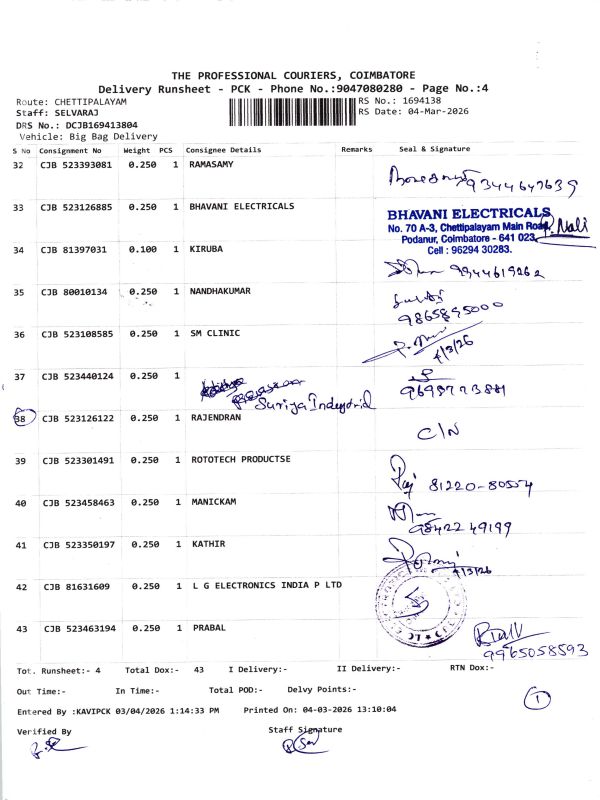 THE PROFESSIONAL COURIERS, COIMBATORE
Delivery Runsheet - PCK - Phone No.:9047080280 - Page No.:4
Route: CHETTIPALAYAM
RS No.: 1694138
Staff: SELVARAJ
RS Date: 04-Mar-2026
DRS No.: DCJB169413804
Vehicle: Big Bag Delivery
S No Consignment No Weight PCS Consignee Details Remarks Seal & Signature
32 CJB 523393081 0.250 1 RAMASAMY
9344647639
33 CJB 523126885 0.250 1 BHAVANI ELECTRICALS
BHAVANI ELECTRICALS
No. 70 A-3, Chettipalayam Main Road,
Podanur, Coimbatore - 641 023.
Cell : 96294 30283.
34 CJB 81397031 0.100 1 KIRUBA
9944619262
35 CJB 80010134 0.250 1 NANDHAKUMAR
9865895000
36 CJB 523108585 0.250 1 SM CLINIC
4/3/26
37 CJB 523440124 0.250 1
Suriya
38 CJB 523126122 0.250 1 RAJENDRAN
C/N
39 CJB 523301491 0.250 1 ROTOTECH PRODUCTSE
Raj 81220-80554
40 CJB 523458463 0.250 1 MANICKAM
98422 49199
41 CJB 523350197 0.250 1 KATHIR
4/3/26
42 CJB 81631609 0.250 1 L G ELECTRONICS INDIA P LTD
43 CJB 523463194 0.250 1 PRABAL
9965058593
Tot. Runsheet:- 4 Total Dox:- 43 I Delivery:- II Delivery:- RTN Dox:-
Out Time:- In Time:- Total POD:- Delvy Points:-
1
Entered By :KAVIPCK 03/04/2026 1:14:33 PM Printed On: 04-03-2026 13:10:04
Verified By Staff Signature